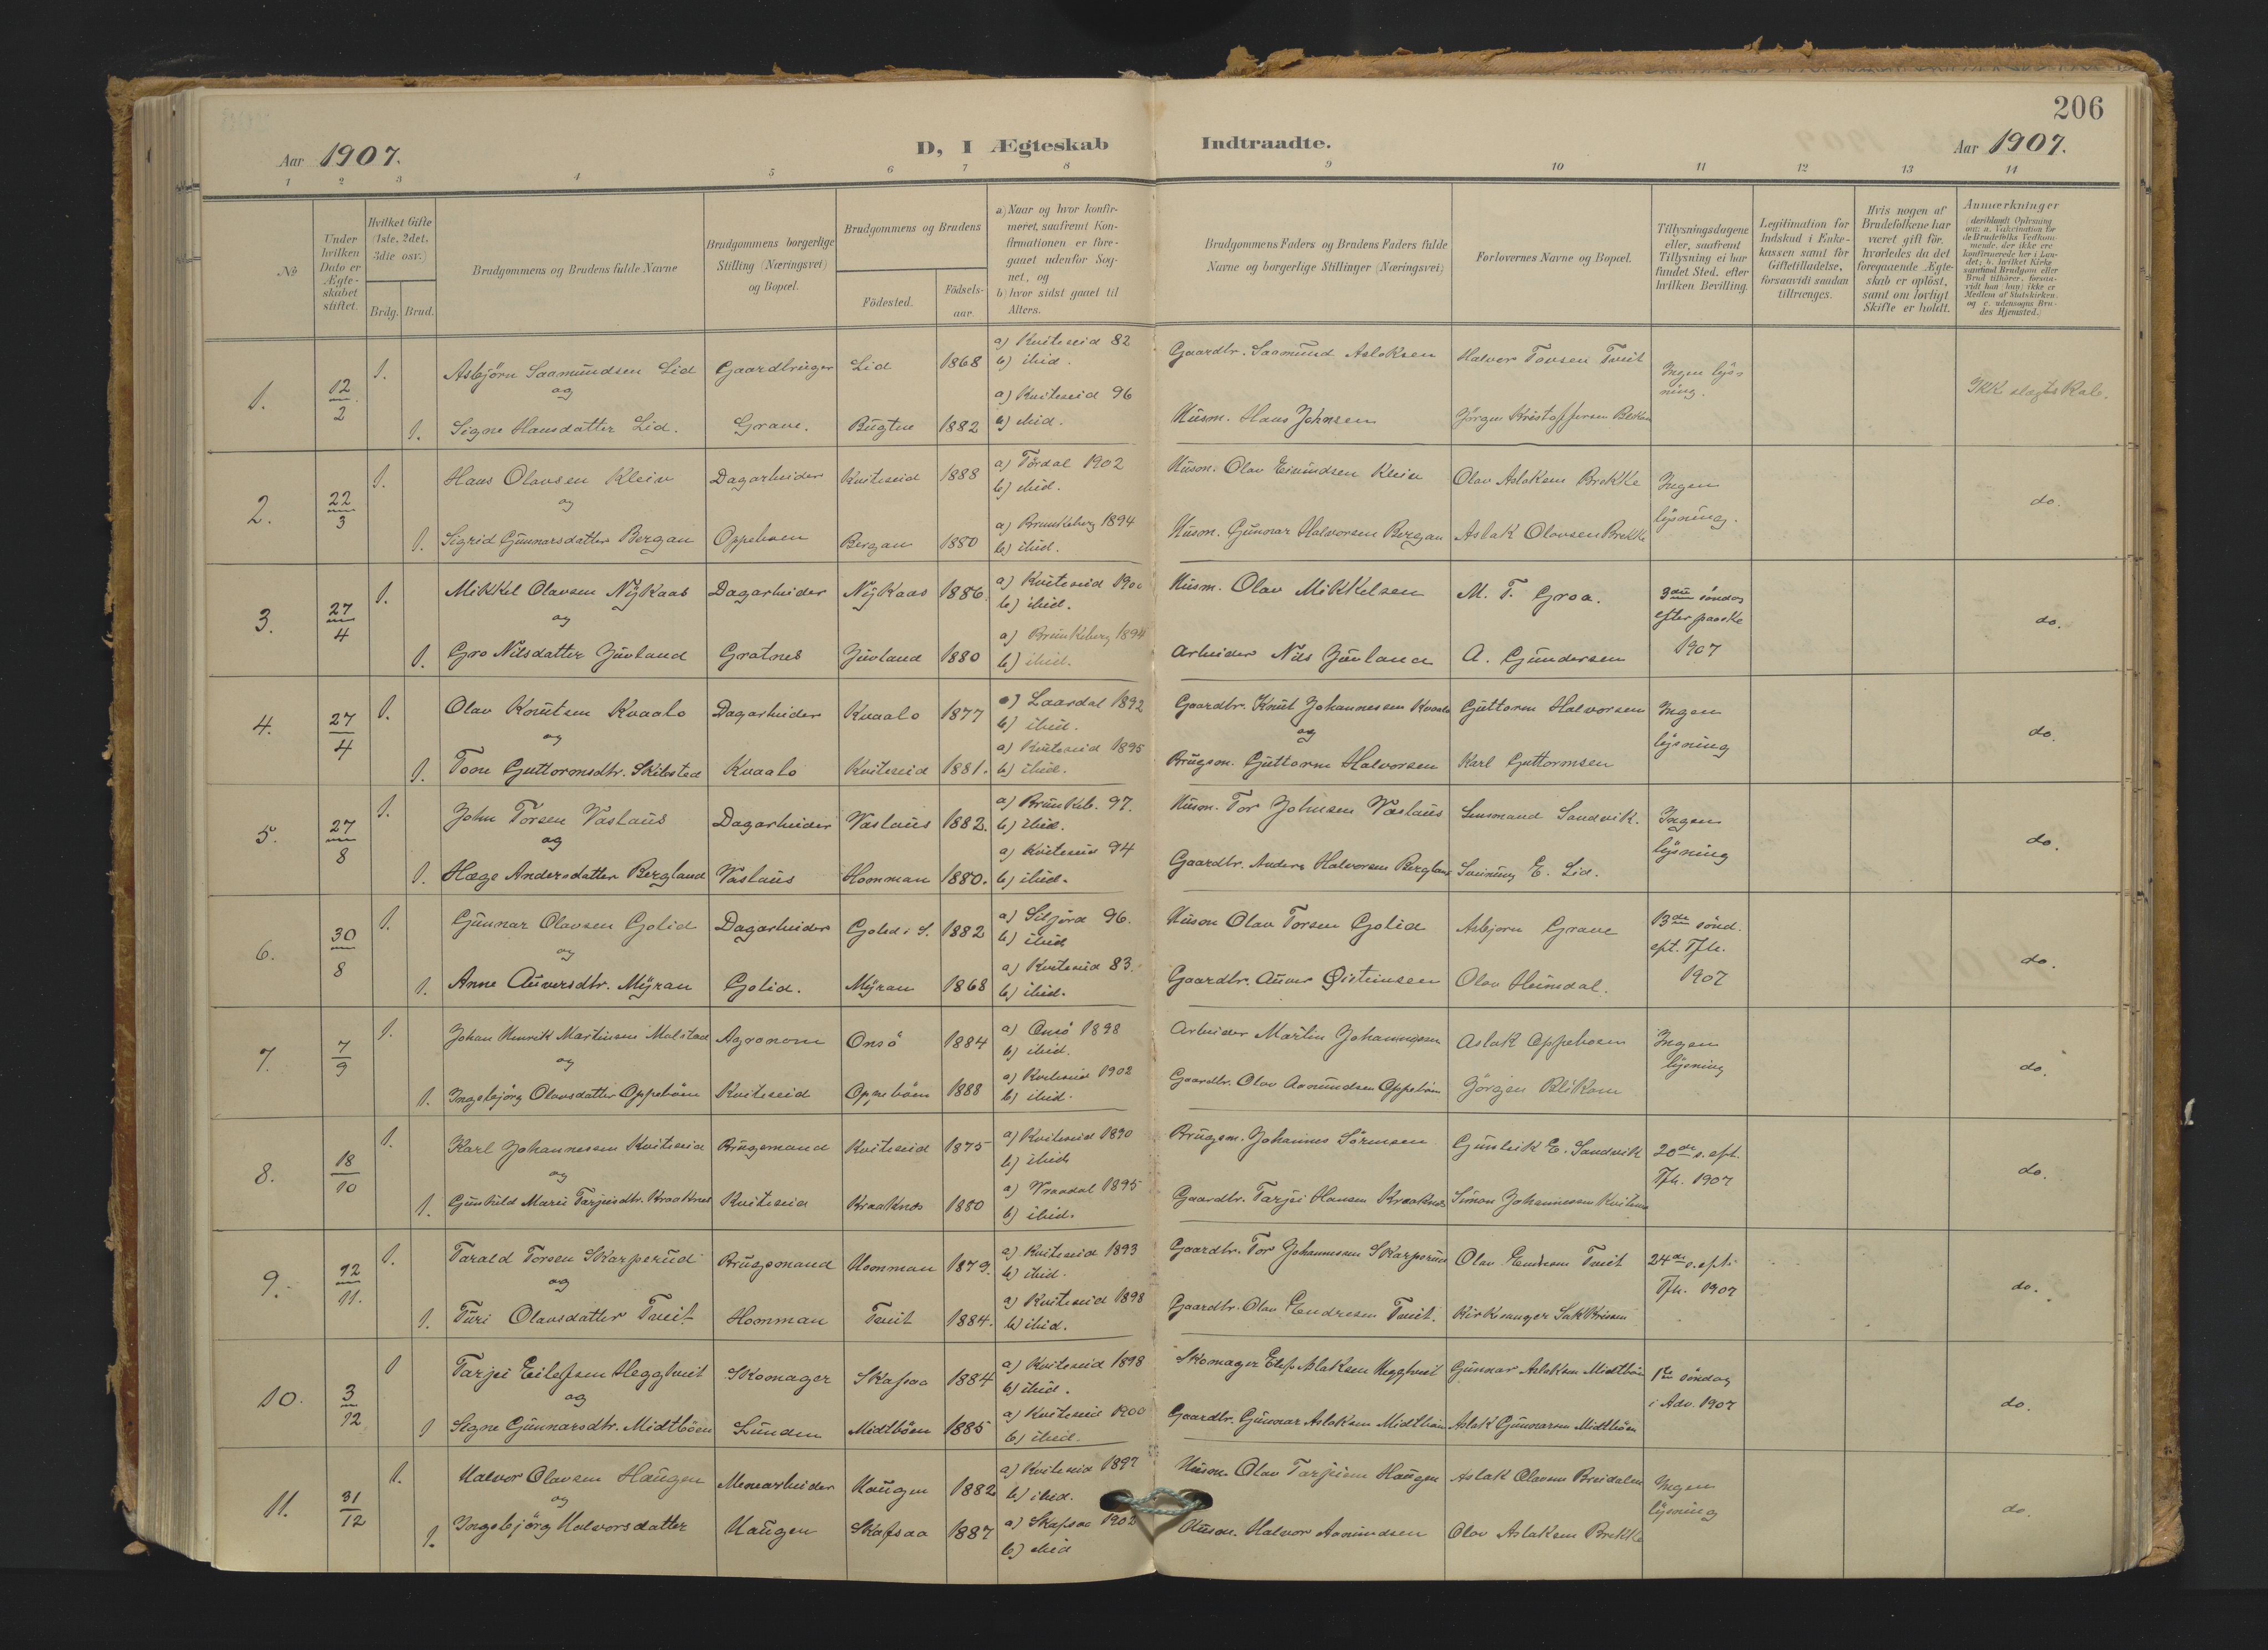 206
Aar 1907.
D, I Ægteskab Indtraadte.
Aar 1907.
1 2 3 4 5 6 7 8 9 10 11 12 13 14
No
Under hvilken Dato er Ægteskabet stiftet.
Hvilket Gifte (1ste, 2det, 3die osv.)
Brdg. Brud.
Brudgommens og Brudens fulde Navne
Brudgommens borgerlige Stilling (Næringsvei) og Bopæl.
Brudgommens og Brudens
Födested.
Födselsaar
a) Naar og hvor konfirmeret, saafremt Konfirmationen er foregaaet udenfor Sognet, og
b) hvor sidst gaaet til Alters.
Brudgommens Faders og Brudens Faders fulde Navne og borgerlige Stillinger (Næringsvei)
Forlovernes Navne og Bopæl.
Tillysningsdagene eller, saafremt Tillysning ei har fundet Sted, efter hvilken Bevilling.
Legitimation for Indskud i Enkekassen samt for Giftetilladelse, forsaavidt saadan tiltrænges.
Hvis nogen af Brudefolkene har været gift för, hvorledes da det foregaaende Ægteskab er oplöst, samt om lovligt Skifte er holdt.
Anmærkninger
(deriblandt Oplysning om: a. Vakcination for de Brudefolks Vedkommende, der ikke ere konfirmerede her i Landet; b. hvilket Kirkesamfund Brudgom eller Brud tilhører, forsaavidt han (hun) ikke er Medlem af Statskirken, og c. udensogns Brudes Hjemsted.)
1. 12/2 1. Asbjörn Saamundsen Lid Gaardbruger Lid 1868 a) Kviteseid 82 b) ibid. Gaardbr. Saamund Aslaksen Halvor Tovsen Tveit Ingen lysning. Ikk slægtskab.
og
1. Signe Hansdatter Lid. Grave. Bugtne 1882 a) Kviteseid 96 b) ibid. Husm. Hans Johnsen Jörgen Kristoffersen
2. 22/3 1. Hans Olavsen Kleiv Dagarbeider Kviteseid 1888 a) Tördal 1902 b) ibid. Husm. Olav Eivindsen Kleiv Olav Aslaksen Brekke Ingen lysning. do.
og
1. Sigrid Gunnarsdatter Bergan Oppeboen Bergan 1880 a) Brunkeberg 1894 b) ibid. Husm. Gunnar Halvorsen Bergan Aslak Olavsen Brekke
3. 27/4 1. Mikkel Olavsen Nykaas Dagarbeider Nykaas 1886. a) Kviteseid 1900 b) ibid. Husm. Olav Mikkelsen M. T. Groa. 3die söndag efter paaske 1907 do.
og
1. Gro Nilsdatter Juvland Gratnes Juvland 1880 a) Brunkeberg 1894 b) ibid. Arbeider Nils Juvland A. Gundersen
4. 27/4 1. Olav Knutsen Kvaalo Dagarbeider Kvaalo 1877 a) Laardal 1892 b) ibid. Gaardbr. Knut Johannesen Kvaalo Guttorm Halvorsen Ingen lysning do.
og og
1. Tone Guttormsdtr. Skibsted Kvaalo Kviteseid 1881. a) Kviteseid 1895 b) ibid. Brugsm. Guttorm Halvorsen Karl Guttormsen
5. 27/8 1. John Torsen Vaslaus Dagarbeider Vaslaus 1882. a) Brunkeb. 97. b) ibid. Husm. Tor Johnsen Vaslaus Lensmand Sandvik. Ingen lysning do.
og
1. Hæge Andersdatter Bergland Vaslaus Homman 1880. a) Kviteseid 94 b) ibid. Gaardbr. Anders Halvorsen Bergland Sveinung E. Lid.
6. 30/8 1. Gunnar Olavsen Golid Dagarbeider Golid i S. 1882 a) Siljord 96. b) ibid Husm Olav Torsen Golid Asbjorn Grave 13de sönd. eft. Tfh. 1907 do.
og
1. Anne Auversdtr. Myran Golid. Myran 1868 a) Kviteseid 83. b) ibid. Gaardbr. Auver Øisteinsen Olav Heimdal.
7. 7/9 1. Johan Henrik Martinsen Malstad Agronom Onsö 1884 a) Onsö 1898 b) ibid. Arbeider Martin Johannesen Aslak Oppeboen Ingen lysning do.
og
1. Ingebjörg Olavsdatter Oppeböen Kviteseid Oppeböen 1888 a) Kviteseid 1902 b) ibid. Gaardbr. Olav Aamundsen Oppeböen Jörgen Blikom
8. 18/10 1. Karl Johannesen Kviteseid Brugsmand Kviteseid 1875 a) Kviteseid 1890 b) ibid. Brugsm. Johannes Sörensen Gunleik E. Sandvik 20de s. eft. Tfh. 1907 do.
og
1. Gunhild Marie Tarjeisdtr. Kraaknes Kviteseid Kraaknes 1880 a) Vraadal 1895 b) ibid. Gaardbr. Tarjei Hansen Kraaknes Simon Johannesen Kviteseid
9. 12/11. 1. Tarald Torsen Skarperud Brugsmand Homman 1879. a) Kviteseid 1893 b) ibid. Gaardbr. Tor Johannesen Skarperud Olav Endresen Tveit 24de s. eft. Tfh. 1907 do.
og
1. Turi Olavsdatter Tveit Homman Tveit 1884. a) Kviteseid 1898 b) ibid. Gaardbr. Olav Endresen Tveit. Kirkesanger
10. 3/12 1 Tarjei Eilefsen Heggtveit Skomager Skafsaa 1884 a) Kviteseid 1898 b) ibid. Skomager Eilef Aslaksen Heggtveit Gunnar Aslaksen Midtböen 1ste söndag i Adv. 1907 do.
og
1 Signe Gunnarsdtr. Midtböen Lunden Midtböen 1885 a) Kviteseid 1900 b) ibid. Gaardbr. Gunnar Aslaksen Midtböen Aslak Gunnarsen Midtböen
11. 31/12 1. Halvor Olavsen Haugen Minearbeider Haugen 1882 a) Kviteseid 1897 b) ibid. Husm. Olav Tarjeisen Haugen Aslak Olavsen Breidalen Ingen lysning do.
og
1. Ingebjörg Halvorsdatter Haugen Skafsaa 1887 a) Skafsaa 1902 b) ibid Husm. Halvor Aamundsen Olav Aslaksen Brekke